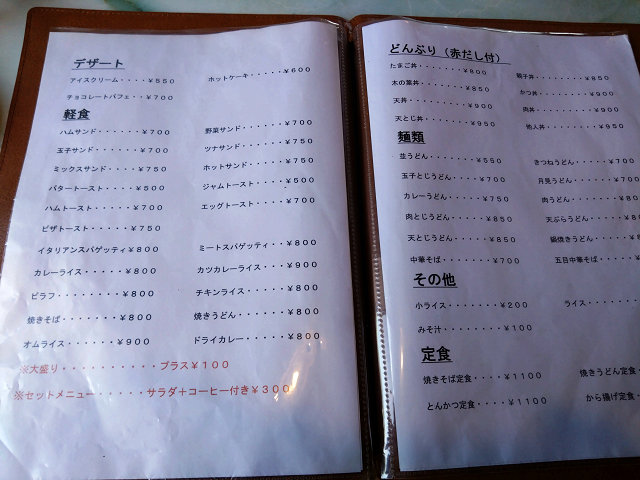 デザート
アイスクリーム・・・・¥550 ホットケーキ・・・・・¥600
チョコレートパフェ・・¥700
軽食
ハムサンド・・・・・¥700 野菜サンド・・・・・・¥700
玉子サンド・・・・・¥700 ツナサンド・・・・・・¥750
ミックスサンド・・・・¥750 ホットサンド・・・・・¥750
バタートースト・・・・¥500 ジャムトースト・・・・¥500
ハムトースト・・・・・¥700 エッグトースト・・・・¥700
ピザトースト・・・・・¥750
イタリアンスパゲッティ¥800 ミートスパゲッティ・・・¥800
カレーライス・・・・・¥800 カツカレーライス・・・¥900
ピラフ・・・・・・・・¥800 チキンライス・・・・・¥800
焼きそば・・・・・・・¥800 焼きうどん・・・・・・¥800
オムライス・・・・・¥900 ドライカレー・・・・・¥800
※大盛り・・・・・・・・・・プラス¥100
※セットメニュー・・・・・サラダ+コーヒー付き¥300
どんぶり(赤だし付)
たまご丼・・・・・・¥800 親子丼・・・・・・・¥850
木の葉丼・・・・・・¥850 かつ丼・・・・・・・¥900
天丼・・・・・・・・¥900 肉丼・・・・・・・・¥900
天とじ丼・・・・・・¥950 他人丼・・・・・・・¥950
麺類
並うどん・・・・・・¥550 きつねうどん・・・・¥700
玉子とじうどん・・・¥700 月見うどん・・・・・¥700
カレーうどん・・・・¥750 肉うどん・・・・・・¥80
肉とじうどん・・・・¥850 天ぷらうどん・・・・¥8
天とじうどん・・・・¥850 鍋焼きうどん・・・・¥
中華そば・・・・・・¥700 五目中華そば・・・・¥
その他
小ライス・・・・・・¥200 ライス・・・・・・・
みそ汁・・・・・・・¥100
定食
焼きそば定食・・・・¥1100 焼きうどん定食・・
とんかつ定食・・・・¥1100 から揚げ定食・・・